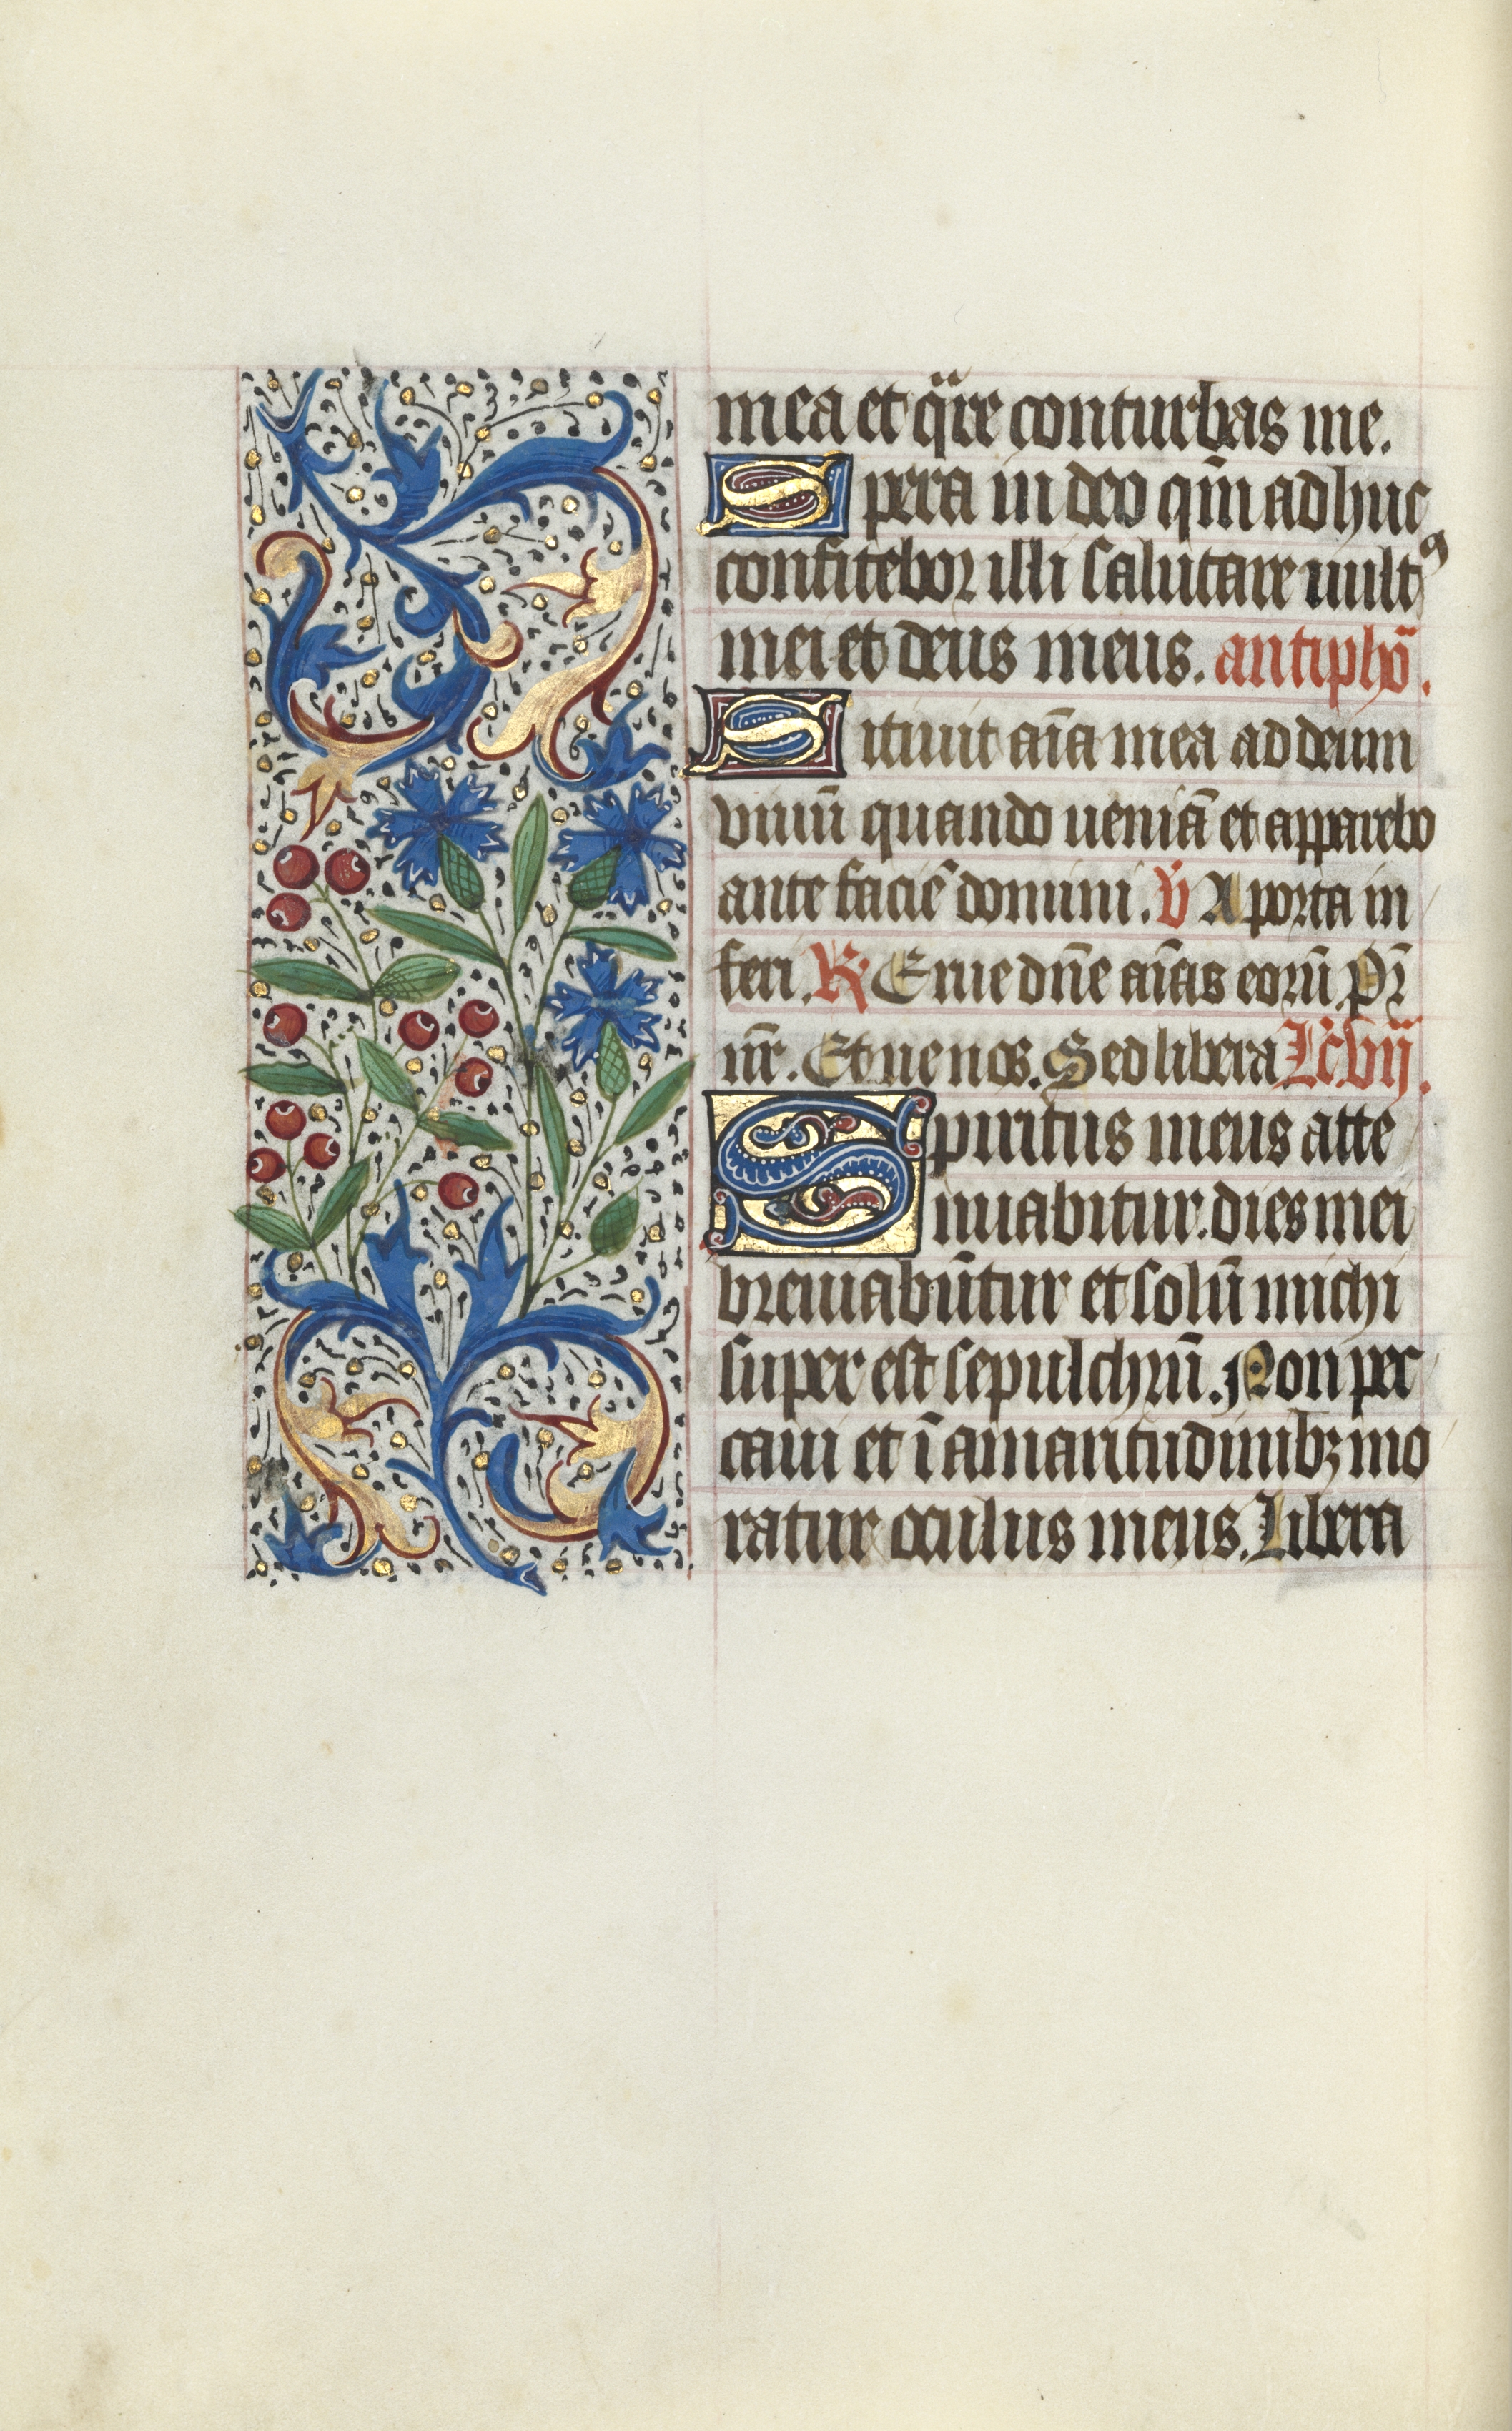 mea et q̈re conturbas me.
Spera in deo qm̄ adhuc
confitebor illi salutare vultꝰ
mei et deus meus. antiphō.
Sitiuit aīa mea ad deum
viuū quando ueniā et apparebo
ante faciē domini. V̇ A porta in
feri. R Erue dn̄e aīas eorū. Pr̄
nr̄. Et ne nos. Sed libera Lc̄. vij.
Spiritus meus atte
nuabitur. dies mei
breuiabūtur et solū michi
super est sepulchrū. Non pec
caui et ī amaritudinibꝫ mo
ratur oculus meus. Libera